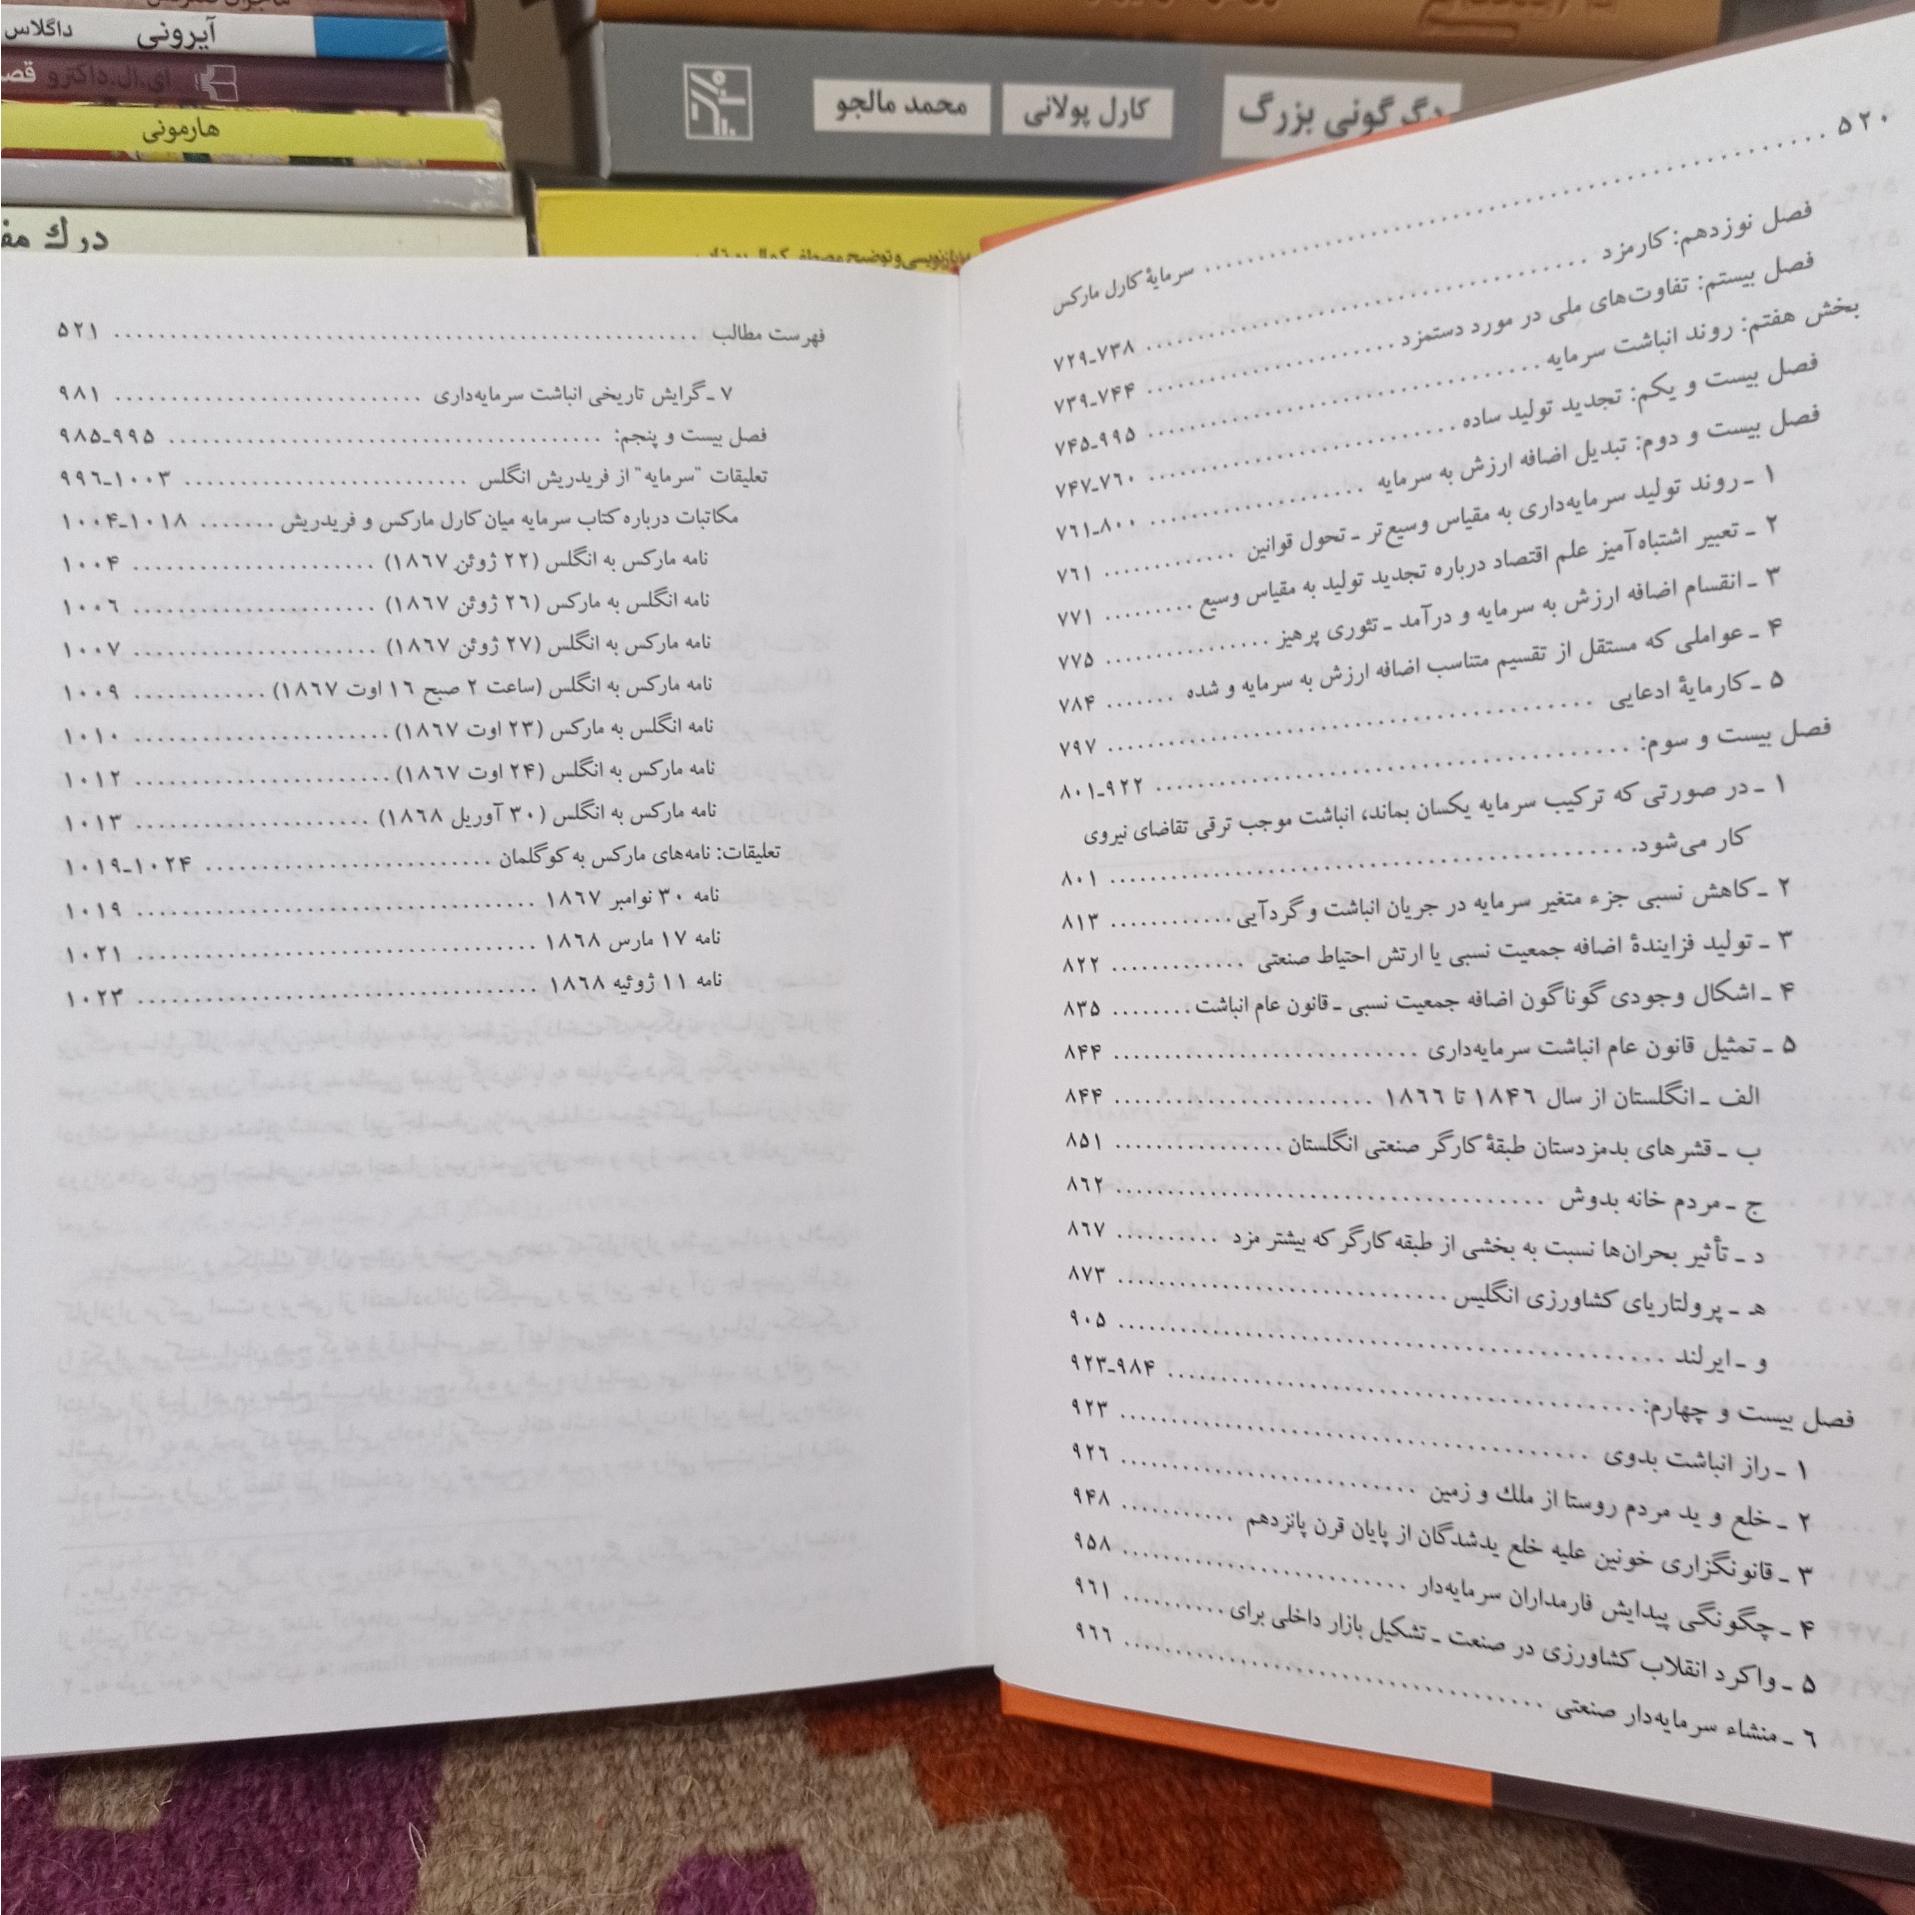 آیرونی
داگلاس
ای.ال.داکترو
قص
هارمونی
درك مف
دگرگونی بزرگ
کارل پولانی
محمد مالجو
۵۲۰ ........ سرمایهٔ کارل مارکس
فصل نوزدهم: کارمزد ........ ۷۲۹ـ۷۳۸
فصل بیستم: تفاوت‌های ملی در مورد دستمزد ........ ۷۳۹ـ۷۴۴
بخش هفتم: روند انباشت سرمایه ........ ۷۴۵ـ۹۹۵
فصل بیست و یکم: تجدید تولید ساده ........ ۷۴۷ـ۷۶۰
فصل بیست و دوم: تبدیل اضافه ارزش به سرمایه ........ ۷۶۱ـ۸۰۰
۱ ـ روند تولید سرمایه‌داری به مقیاس وسیع‌تر ـ تحول قوانین ........ ۷۶۱
۲ ـ تعبیر اشتباه‌آمیز علم اقتصاد درباره تجدید تولید به مقیاس وسیع ........ ۷۷۱
۳ ـ انقسام اضافه ارزش به سرمایه و درآمد ـ تئوری پرهیز ........ ۷۷۵
۴ ـ عواملی که مستقل از تقسیم متناسب اضافه ارزش به سرمایه و شده ........ ۷۸۴
۵ ـ کارمایهٔ ادعایی ........ ۷۹۷
فصل بیست و سوم: ........ ۸۰۱ـ۹۲۲
۱ ـ در صورتی که ترکیب سرمایه یکسان بماند، انباشت موجب ترقی تقاضای نیروی
کار می‌شود. ........ ۸۰۱
۲ ـ کاهش نسبی جزء متغیر سرمایه در جریان انباشت و گردآیی ........ ۸۱۳
۳ ـ تولید فزایندهٔ اضافه جمعیت نسبی یا ارتش احتیاط صنعتی ........ ۸۲۲
۴ ـ اشکال وجودی گوناگون اضافه جمعیت نسبی ـ قانون عام انباشت ........ ۸۳۵
۵ ـ تمثیل قانون عام انباشت سرمایه‌داری ........ ۸۴۴
الف ـ انگلستان از سال ۱۸۴۶ تا ۱۸۶۶ ........ ۸۴۴
ب ـ قشرهای بدمزدستان طبقهٔ کارگر صنعتی انگلستان ........ ۸۵۱
ج ـ مردم خانه بدوش ........ ۸۶۲
د ـ تأثیر بحران‌ها نسبت به بخشی از طبقه کارگر که بیشتر مزد ........ ۸۶۷
هـ ـ پرولتاریای کشاورزی انگلیس ........ ۸۷۳
و ـ ایرلند ........ ۹۰۵
فصل بیست و چهارم: ........ ۹۲۳ـ۹۸۴
۱ ـ راز انباشت بدوی ........ ۹۲۳
۲ ـ خلع و ید مردم روستا از ملك و زمین ........ ۹۲۶
۳ ـ قانونگزاری خونین علیه خلع یدشدگان از پایان قرن پانزدهم ........ ۹۴۸
۴ ـ چگونگی پیدایش فارمداران سرمایه‌دار ........ ۹۵۸
۵ ـ واکرد انقلاب کشاورزی در صنعت ـ تشکیل بازار داخلی برای ........ ۹۶۱
۶ ـ منشاء سرمایه‌دار صنعتی ........ ۹۶۶
فهرست مطالب ........ ۵۲۱
۷ ـ گرایش تاریخی انباشت سرمایه‌داری ........ ۹۸۱
فصل بیست و پنجم: ........ ۹۸۵ـ۹۹۵
تعلیقات "سرمایه" از فریدریش انگلس ........ ۹۹۶ـ۱۰۰۳
مکاتبات درباره کتاب سرمایه میان کارل مارکس و فریدریش ........ ۱۰۰۴ـ۱۰۱۸
نامه مارکس به انگلس (۲۲ ژوئن ۱۸۶۷) ........ ۱۰۰۴
نامه انگلس به مارکس (۲۶ ژوئن ۱۸۶۷) ........ ۱۰۰۶
نامه مارکس به انگلس (۲۷ ژوئن ۱۸۶۷) ........ ۱۰۰۷
نامه مارکس به انگلس (ساعت ۲ صبح ۱۶ اوت ۱۸۶۷) ........ ۱۰۰۹
نامه انگلس به مارکس (۲۳ اوت ۱۸۶۷) ........ ۱۰۱۰
نامه مارکس به انگلس (۲۴ اوت ۱۸۶۷) ........ ۱۰۱۲
نامه مارکس به انگلس (۳۰ آوریل ۱۸۶۸) ........ ۱۰۱۳
تعلیقات: نامه‌های مارکس به کوگلمان ........ ۱۰۱۹ـ۱۰۲۴
نامه ۳۰ نوامبر ۱۸۶۷ ........ ۱۰۱۹
نامه ۱۷ مارس ۱۸۶۸ ........ ۱۰۲۱
نامه ۱۱ ژوئیه ۱۸۶۸ ........ ۱۰۲۳